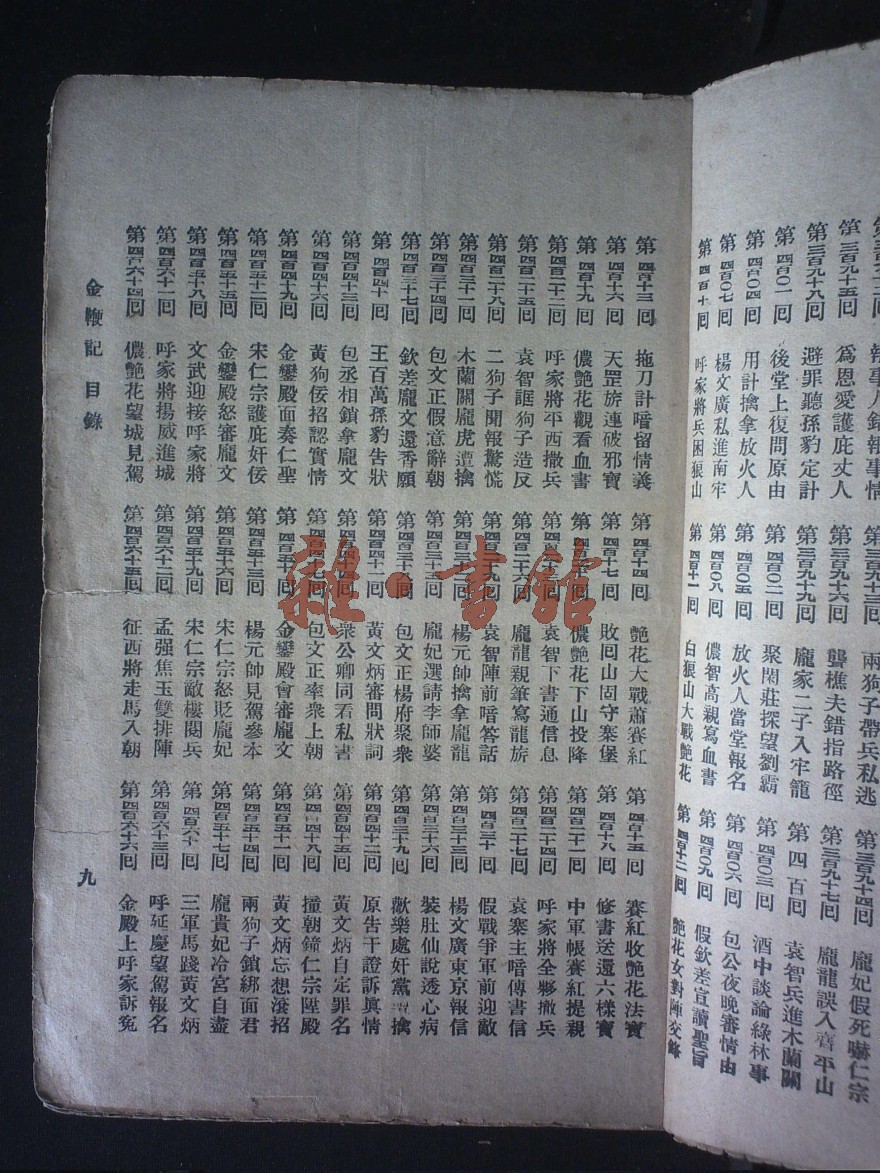 第三百九十二回 執事人錯報事情 第三百九十三回 兩狗子帶兵私逃 第三百九十四回 龐妃假死嚇仁宗
第三百九十五回 爲恩愛護庇丈人 第三百九十六回 龔樵夫錯指路徑 第三百九十七回 龐龍誤入齊平山
第三百九十八回 避罪聽孫豹定計 第三百九十九回 龐家二子入牢籠 第四百回 袁智兵進木蘭關
第四百〇一回 後堂上復問原由 第四百〇二回 聚閑莊探望劉霸 第四百〇三回 酒中談論綠林事
第四百〇四回 用計擒拿放火人 第四百〇五回 放火人當堂報名 第四百〇六回 包公夜晚審情由
第四百〇七回 楊文廣私進南牢 第四百〇八回 儂智高親寫血書 第四百〇九回 假欽差宣讀聖旨
第四百十回 呼家將兵困狼山 第四百十一回 白狼山大戰艷花 第四百十二回 艷花女對陣交鋒
第四百十三回 拖刀計暗留情義 第四百十四回 艷花大戰蕭賽紅 第四百十五回 賽紅收艷花法寶
第四百十六回 天罡旂連破邪寶 第四百十七回 敗回山固守寨堡 第四百十八回 修書送還六樣寶
第四百十九回 儂艷花觀看血書 第四百二十回 儂艷花下山投降 第四百二十一回 中軍帳賽紅提親
第四百二十二回 呼家將平西撒兵 第四百二十三回 袁智下書通信息 第四百二十四回 呼家將全夥撤兵
第四百二十五回 袁智誆狗子造反 第四百二十六回 龐龍親筆寫龍旂 第四百二十七回 袁寨主暗傳書信
第四百二十八回 二狗子聞報驚慌 第四百二十九回 袁智陣前暗答話 第四百三十回 假戰爭軍前迎敵
第四百三十一回 木蘭關龐虎遭擒 第四百三十二回 楊元帥擒拿龐龍 第四百三十三回 楊文廣東京報信
第四百三十四回 包文正假意辭朝 第四百三十五回 龐妃選請李師婆 第四百三十六回 裝肚仙說透心病
第四百三十七回 欽差龐文還香願 第四百三十八回 包文正楊府聚衆 第四百三十九回 歡樂處奸黨擒
第四百四十回 王百萬孫豹告狀 第四百四十一回 黃文炳審問狀詞 第四百四十二回 原告干證訴眞情
第四百四十三回 包丞相鎖拿龐文 第四百四十四回 衆公卿同看私書 第四百四十五回 黃文炳自定罪名
第四百四十六回 黃狗佞招認實情 第四百四十七回 包文正率衆上朝 第四百四十八回 撞朝鐘仁宗陞殿
第四百四十九回 金鑾殿面奏仁聖 第四百五十回 金鑾殿會審龐文 第四百五十一回 黃文炳忘想滾招
第四百五十二回 宋仁宗護庇奸佞 第四百五十三回 楊元帥見駕參本 第四百五十四回 兩狗子鎖綁面君
第四百五十五回 金鑾殿怒審龐文 第四百五十六回 宋仁宗怒貶龐妃 第四百五十七回 龐貴妃冷宮自盡
第四百五十八回 文武迎接呼家將 第四百五十九回 宋仁宗敵樓閱兵 第四百六十回 三軍馬踐黃文炳
第四百六十一回 呼家將揚威進城 第四百六十二回 孟强焦玉雙排陣 第四百六十三回 呼延慶望駕報名
第四百六十四回 儂艷花望城見駕 第四百六十五回 征西將走馬入朝 第四百六十六回 金殿上呼家訴冤
金鞭記 目錄 九
雜·書館